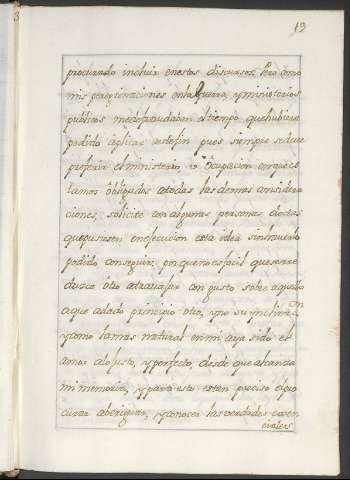 19
procurado incluir enestos discursos, Pero como
mis peregrinaciones enla Guerra, y ministerios
publicos medefraudaban el tiempo quehubiera
podido aplicar aestefin pues siempre sedeve
proferir el ministerio, ô ocupacion enquees
tamos obligados atodas las demas considera
ciones, solicite con algunas personas doctas
quepusiesen enejecucion esta idea sinhaverlo
podido conseguir; porqueno es facil que se re
duzca otro atrauajar con gusto sobre aquello
a que adado principio otro, y no su inclina
on
y como la mas natural en mi aya sido el
amor alo justo, y perfecto, desde que alcanza
mi memoria, y para esto esten preciso el pro
curar aberiguar, y conocer las verdades
ciales